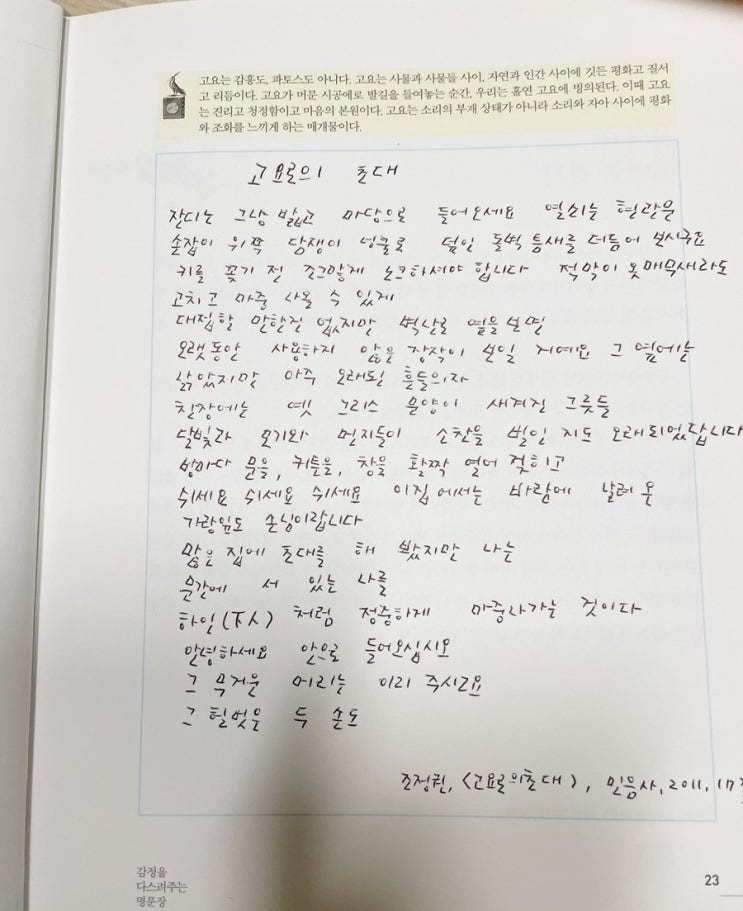 고요는 감흥도, 파토스도 아니다. 고요는 사물과 사물들 사이, 자연과 인간 사이에 깃든 평화고 질서
고 리듬이다. 고요가 머문 시공에로 발길을 들여놓는 순간, 우리는 홀연 고요에 빙의된다. 이때 고요
는 진리고 청정함이고 마음의 본원이다. 고요는 소리의 부재 상태가 아니라 소리와 자아 사이에 평화
와 조화를 느끼게 하는 매개물이다.
고요로의 초대
잔디는 그냥 밟고 마당으로 들어오세요 열쇠는 현관문
손잡이 위쪽 담쟁이 넝쿨로 덮인 돌벽 틈새를 더듬어 보시구요
키를 꽂기 전 조그맣게 노크하셔야 합니다 적막이 옷매무새라도
고치고 마중 나올 수 있게
대접할 만한 건 없지만 벽난로 옆을 보면
오랫동안 사용하지 않은 장작이 보일 거예요 그 옆에는
낡았지만 아주 오래된 흔들의자
찬장에는 옛 그리스 문양이 새겨진 그릇들
달빛과 모기와 먼지들이 소찬을 벌인 지도 오래되었답니다
방마다 문을, 커튼을, 창을 활짝 열어 젖히고
쉬세요 쉬세요 쉬세요 이집에서는 바람에 날려 온
가랑잎도 손님이랍니다
많은 집에 초대를 해 봤지만 나는
문간에 서 있는 나를
하인(下人) 처럼 정중하게 마중나가는 것이다
안녕하세요 안으로 들어오십시오
그 무거운 머리는 이리 주시고요
그 헐벗은 두 손도
조정권, <고요로의초대>, 민음사, 2011, 17
감정을
다스려주는
명문장
23